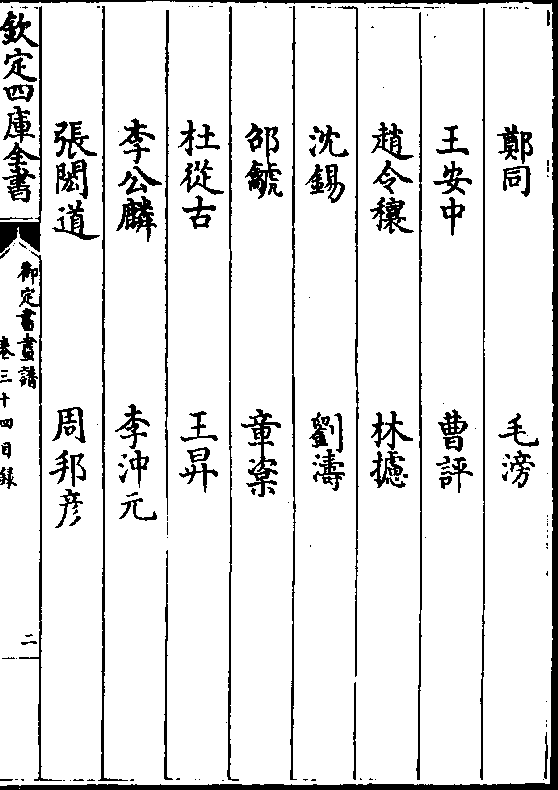 鄭同 毛滂
王安中 曹評
趙令穰 林攄
沈錫 劉濤
邵𩰚 章楶
杜從古 王昇
李公麟 李沖元
張閎道 周邦彦
欽定四庫全書
御定書畫譜
卷三十四目録
二